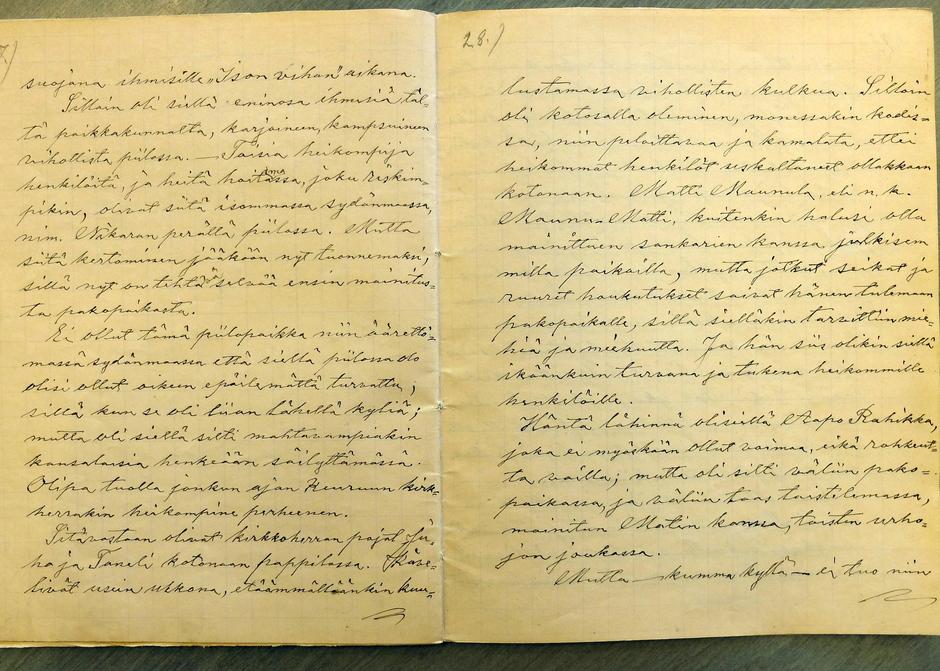 7.)
suojana ihmisille „Ison vihan" aikana.
Silloin oli siellä eninosa ihmisiä täl-
tä paikkakunnalta, karjoineen, kampsuineen
vihollista piilossa. — Toisia heikompija
henkilöitä, ja heitä hoitamassa, joku reskin-
pikin, olivat siitä isommassa sydänmaassa,
nim. Näkärän perällä piilossa. Mutta
siitä kertominen jääköön nyt tuonnemaksi;
sillä nyt on tehtävä selvää ensin mainitus-
ta pakopaikasta.
Ei ollut tämä piilopaikka niin ääretto-
massa sydänmaassa että siellä piilossa olo
olisi ollut oikeen epäilemättä turvattu;
sillä kun se oli liian lähellä kyliä;
mutta oli siellä silti mahtavampiakin
kansalaisia henkeään säilyttämässä.
Olipa tuolla jonkun ajan Keuruun kirk-
herrakin heikompine perheineen.
Sitävastoin olivat kirkkoherran pojat Ju-
ho ja Taneli kotonaan pappilassa. Käve-
livät usein ukkona, etäämmältäänkin kuu-
28.)
lustamassa vihollisten kulkua. Silloin
oli kotosalla oleminen, monessakin kodis-
sa, niin peloittavaa ja kamalata, ettei
heikommat henkilöt uskaltaneet ollakkaan
kotonaan. Matti Maunula, eli n. k.
Maunu-Matti, kuitenkin halusi olla
mainittuen sankarien kanssa julkisem
milla paikoilla, mutta jotkut seikat ja
suuret houkutukset saivat hänen tulemaan
pakopaikalle, sillä sielläkin tarvittiin mie-
hiä ja miehuutta. Ja hän siis olikin siellä
ikäänkuin turvana ja tukena heikommille
henkilöille.
Häntä lähinnä oli seillä Aapo Rahikka,
joka ei myöskään ollut voimaa, eikä rohkeut-
ta vailla; mutta oli silti väliin pako-
paikassa, ja väliin taas taistelemassa,
mainitun Matin kanssa, toisten urho-
jon joukossa.
Mutta — kumma kyllä — ei tuo niin